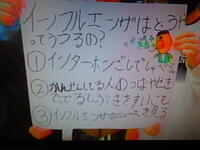 インフルエンザはどうや
ってうつるの?
①インターホンごしでしゃべる
②かんせんしてる人のつばやせき
ででるしぶきをすいこむ
③インフルエンザのニュースを見る